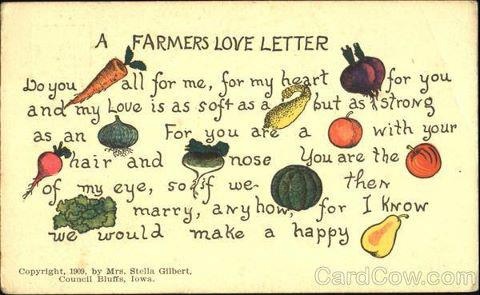 A FARMERS LOVE LETTER
Do you all for me, for my heart for you
and my Love is as soft as a but as strong
as an For you are a with your
hair and nose You are the
of my eye, so if we then
marry, anyhow, for I Know
we would make a happy
Copyright, 1909, by Mrs. Stella Gilbert,
Council Bluffs, Iowa.
CardCow.com